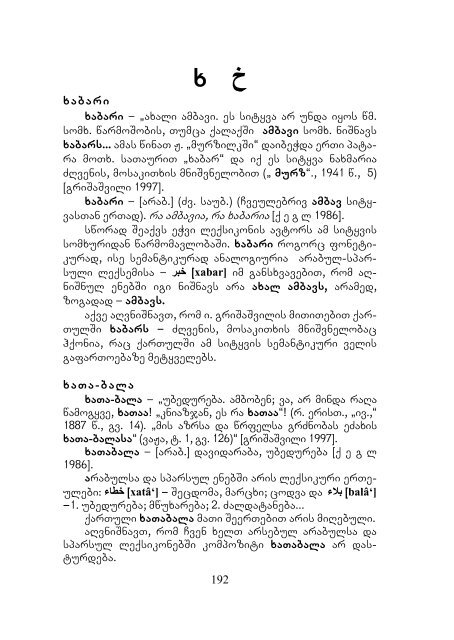 ხ خ
ხაბარი
ხაბარი – „ახალი ამბავი. ეს სიტყვა არ უნდა იყოს წმ.
სომხ. წარმოშობის, თუმცა ქალაქში ამბავი სომხ. ნიშნავს
ხაბარს... ამას წინათ ჟ. „მურზილკში“ დაიბეჭდა ერთი პატა-
რა მოთხ. სათაურით „ხაბარ“ და იქ ეს სიტყვა ნახმარია
ძღვენის, მოსაკითხის მნიშვნელობით („ მურზ“., 1941 წ., 5)
[გრიშაშვილი 1997].
ხაბარი – [არაბ.] (ძვ. საუბ.) (ჩვეულებრივ ამბავ სიტყ-
ვასთან ერთად). რა ამბავია, რა ხაბარია [ქ ე გ ლ 1986].
სწორად შეაქვს ეჭვი ლექსიკონის ავტორს ამ სიტყვის
სომხურიდან წარმომავლობაში. ხაბარი როგორც ფონეტი-
კურად, ისე სემანტიკურად ანალოგიურია არაბულ-სპარ-
სული ლექსემისა – خبر [xabar] იმ განსხვავებით, რომ აღ-
ნიშნულ ენებში იგი ნიშნავს არა ახალ ამბავს, არამედ,
ზოგადად – ამბავს.
აქვე აღვნიშნავთ, რომ ი. გრიშაშვილის მითითებით ქარ-
თულში ხაბარს – ძღვენის, მოსაკითხის მნიშვნელობაც
ჰქონია, რაც ქართულში ამ სიტყვის სემანტიკური ველის
გაფართოებაზე მეტყველებს.
ხათა-ბალა
ხათა-ბალა – „უბედურება. ამბობენ; ვა, არ მინდა რაღა
წამოგყვე, ხათაა! „კნიაზჯან, ეს რა ხათაა“! (რ. ერისთ., „ივ.,“
1887 წ., გვ. 14). „მის აზრსა და წრფელსა გრძნობას ეძახის
ხათა-ბალასა“ (ვაჟა, ტ. 1, გვ. 126)“ [გრიშაშვილი 1997].
ხათაბალა – [არაბ.] დავიდარაბა, უბედურება [ქ ე გ ლ
1986].
არაბულსა და სპარსულ ენებში არის ლექსიკური ერთე-
ულები: خطاء [xatâ‘] – შეცდომა, მარცხი; ცოდვა და بلاء [balâ‘]
–1. უბედურება; მწუხარება; 2. ძალდატანება...
ქართული ხათაბალა მათი შეერთებით არის მიღებული.
აღვნიშნავთ, რომ ჩვენ ხელთ არსებულ არაბულსა და
სპარსულ ლექსიკონებში კომპოზიტი ხათაბალა არ დას-
ტურდება.
192